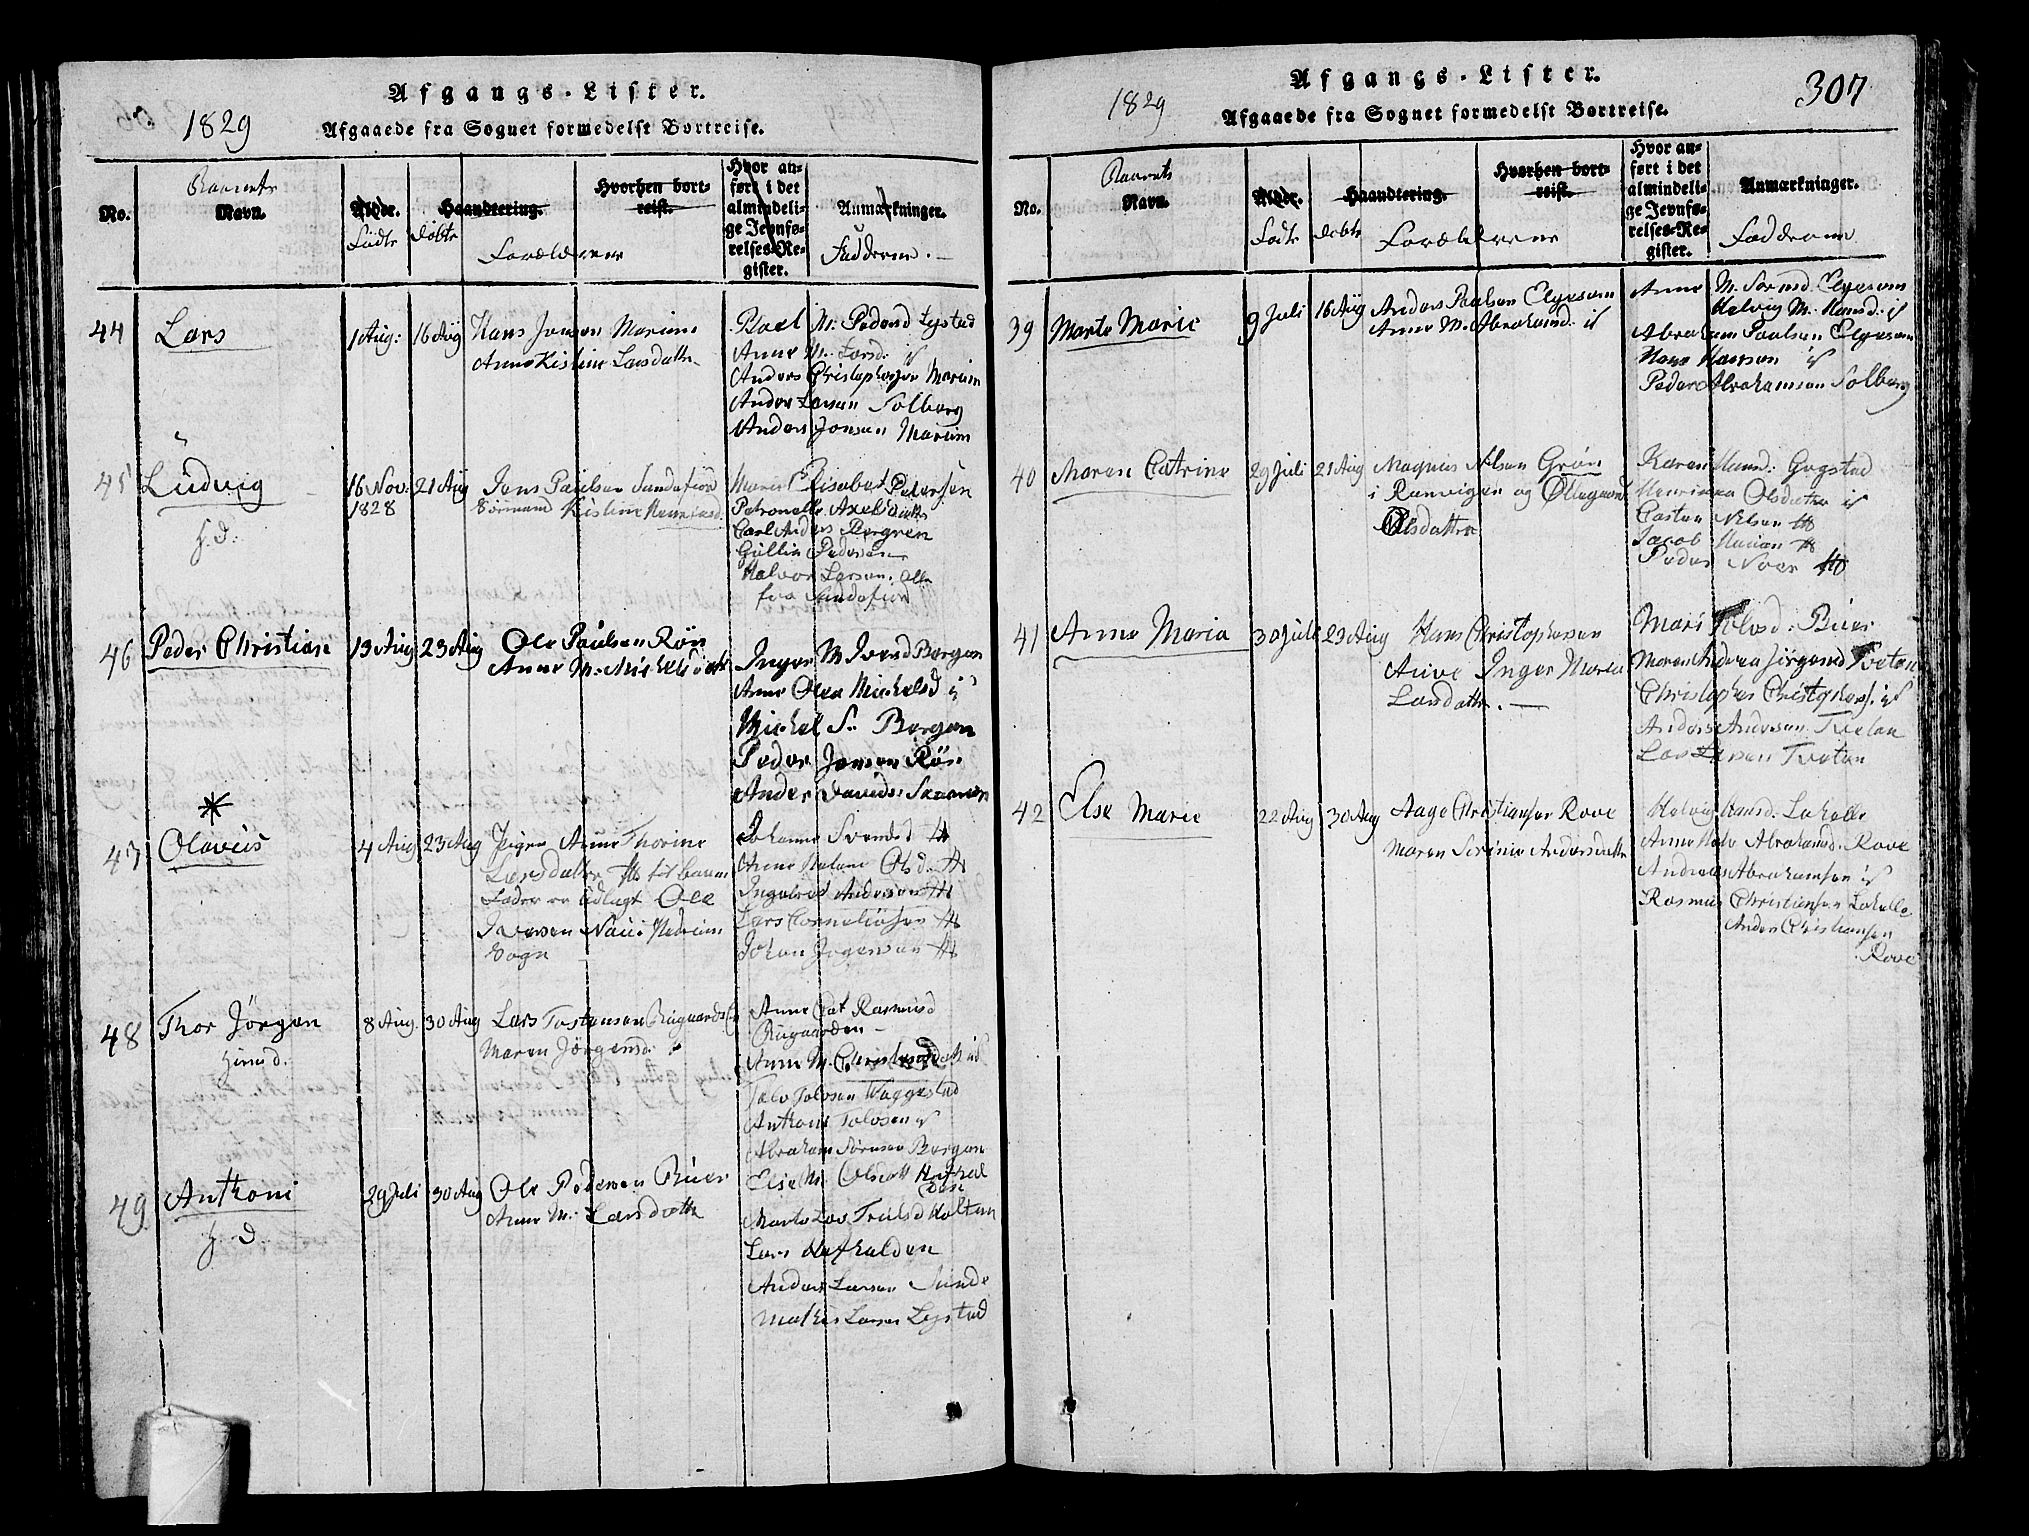 Afgangs-Lister.
1829
Afgaaede fra Sognet formedelst Bortreise.
No.
Barnets
Navn.
Alder.
Födte
Döbte
Haandtering.
Hvorhen bort-
reist.
Forældrene
Hvor an-
ført i det
almindeli-
ge Jevnfø-
relses-Re-
gister.
Anmærkninger.
Fadderne.
44
Lars
1 Aug:
16 Aug
Hans Jensen Marium
Anne Kistine Larsdatte
M. Pedersd
Anne M. Larsd. is
Anders Christophersen Marium
Anders Larsen Solberg
Anders Jensen Marium
45
Ludvig
h. d.
16 Nov.
1828
21 Aug
Jens Paulsen Sandefior
Kistine
Maren Elisabet Petersen
Petronelle Axelsdatte
Carl Anders Bergren
Gullic Pedersen
Halvor Larsen. alle
fra Sandefiord
46
Peder Christian
13 Aug
23 Aug
Ole Paulsen Rön
Anne M. Michelsdatte
Inger M. Iversd Bergan
Anne Olea Michelsd is
Michel S. Bergan
Peder Jensen Rön
Anders Davids:
47
Olavus
4 Aug
23 Aug
Pigen Anne Thorine
Larsdatter til barne
Fader er udlagt Ole
Iversen Hedrum
Sogn
Johanne Svendsd
Anne Malene Olsd.
Ingebret Andersen
Lars Corneliusen
Johan Jörgensen
48
Thor Jörgen
hiemd.
8 Aug.
30 Aug
Lars Tostensen Bugaarden
Maren Jörgensd.
Anne Cat Rasmusd
Bugaarden
Anne M. Christensdatte is
Talv Talvsen Vaggestad
Anthoni Talvsen is
Abraham Sörensen Bergan
49
Anthoni
h. d.
29 Juli
30 Aug
Ole Pedersen Buer
Anne M. Larsdatte
Else M. Olsdatt
Marte Truelsd Holtan
Lars
Anders Larsen Sunde
Mathis Larsen
Afgangs-Lister.
307
1829
Afgaaede fra Sognet formedelst Bortreise.
No.
Barnets
Navn.
Alder.
Födte
Döbte
Haandtering.
Hvorhen bort-
reist.
Forældrene
Hvor an-
ført i det
almindeli-
ge Jevnfø-
relses-Re-
gister.
Anmærkninger.
Fadderne
39
Marte Marie
9 Juli
16 Aug
Anders Paulsen Elgesem
Anne M. Abrahamsd. is
Anne M. Sörensd. Elgesem
Helvig M. Hansd. is
Abraham Paulsen Elgesem
Hans Hansen is
Peder Abrahamsen Solberg
40
Maren Catrine
29 Juli
21 Aug
Magnus Nilsen Gröm
i Ranvigen og Öllegaard
Olsdatter
Karen Hansd: Gogstad
Henrikka Olsdatter is
Casten Nilsen
Jacob Hansen
Peder
41
Anne Maria
30 Juli
23 Aug
Hans Christophersen
Auve Inger Maria
Larsdatte.
Mari Tolvsd. Buer
Maren Andrea Jörgensd Tveten
Christopher Christophers. is
Anders Andersen Tveten
Lars Larsen Tveten
42
Else Marie
22 Aug
30 Aug
Aage Christiansen Rove
Maren Serine Andersdatte
Helvig Hansd. Lahelle
Anne Helv Abrahamsd. Rove
Andreas Abrahamsen is
Rasmus Christiansen Lahelle
Anders Christiansen
Rove